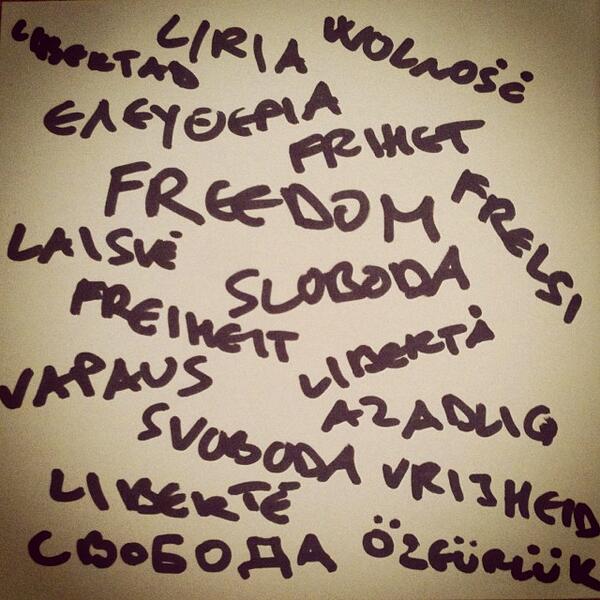 LIBERTAD
LIRIA
WOLNOŚĆ
ΕΛΕΥΘΕΡΙΑ
FRIHET
FREEDOM
FRELSI
LAISVĖ
SLOBODA
FREIHEIT
LIBERTÀ
VAPAUS
AZADLIQ
SVOBODA
VRIJHEID
LIBERTÉ
СВОБОДА
ÖZGÜRLÜK